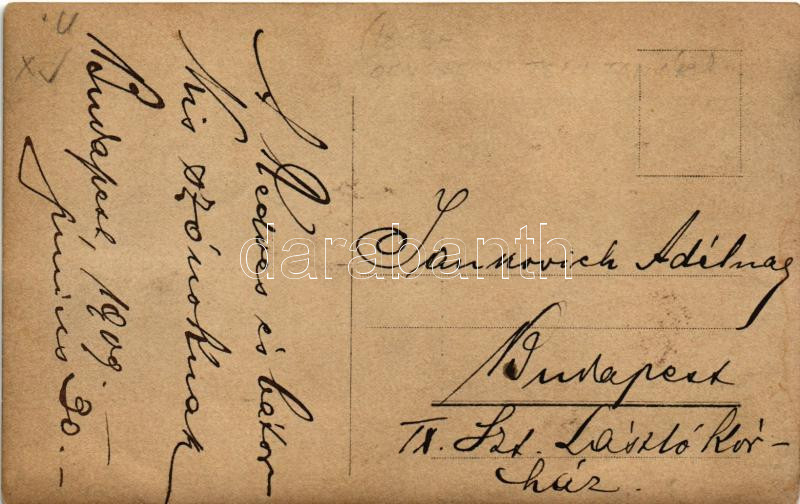 A kedves és bátor
kis szónoknak
Budapest, 1909.
június 30.-
Jankovich Adélnag
Budapest
IX. Szt. László Kór-
ház.
darabanth